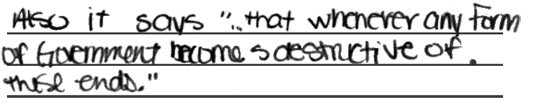 Also it says "..that whenever any form
of Goernment become s destructive of.
these ends."